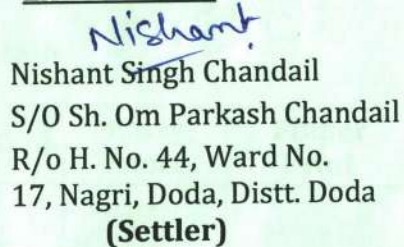 Nishant
Nishant Singh Chandail
S/O Sh. Om Parkash Chandail
R/o H. No. 44, Ward No.
17, Nagri, Doda, Distt. Doda
(Settler)